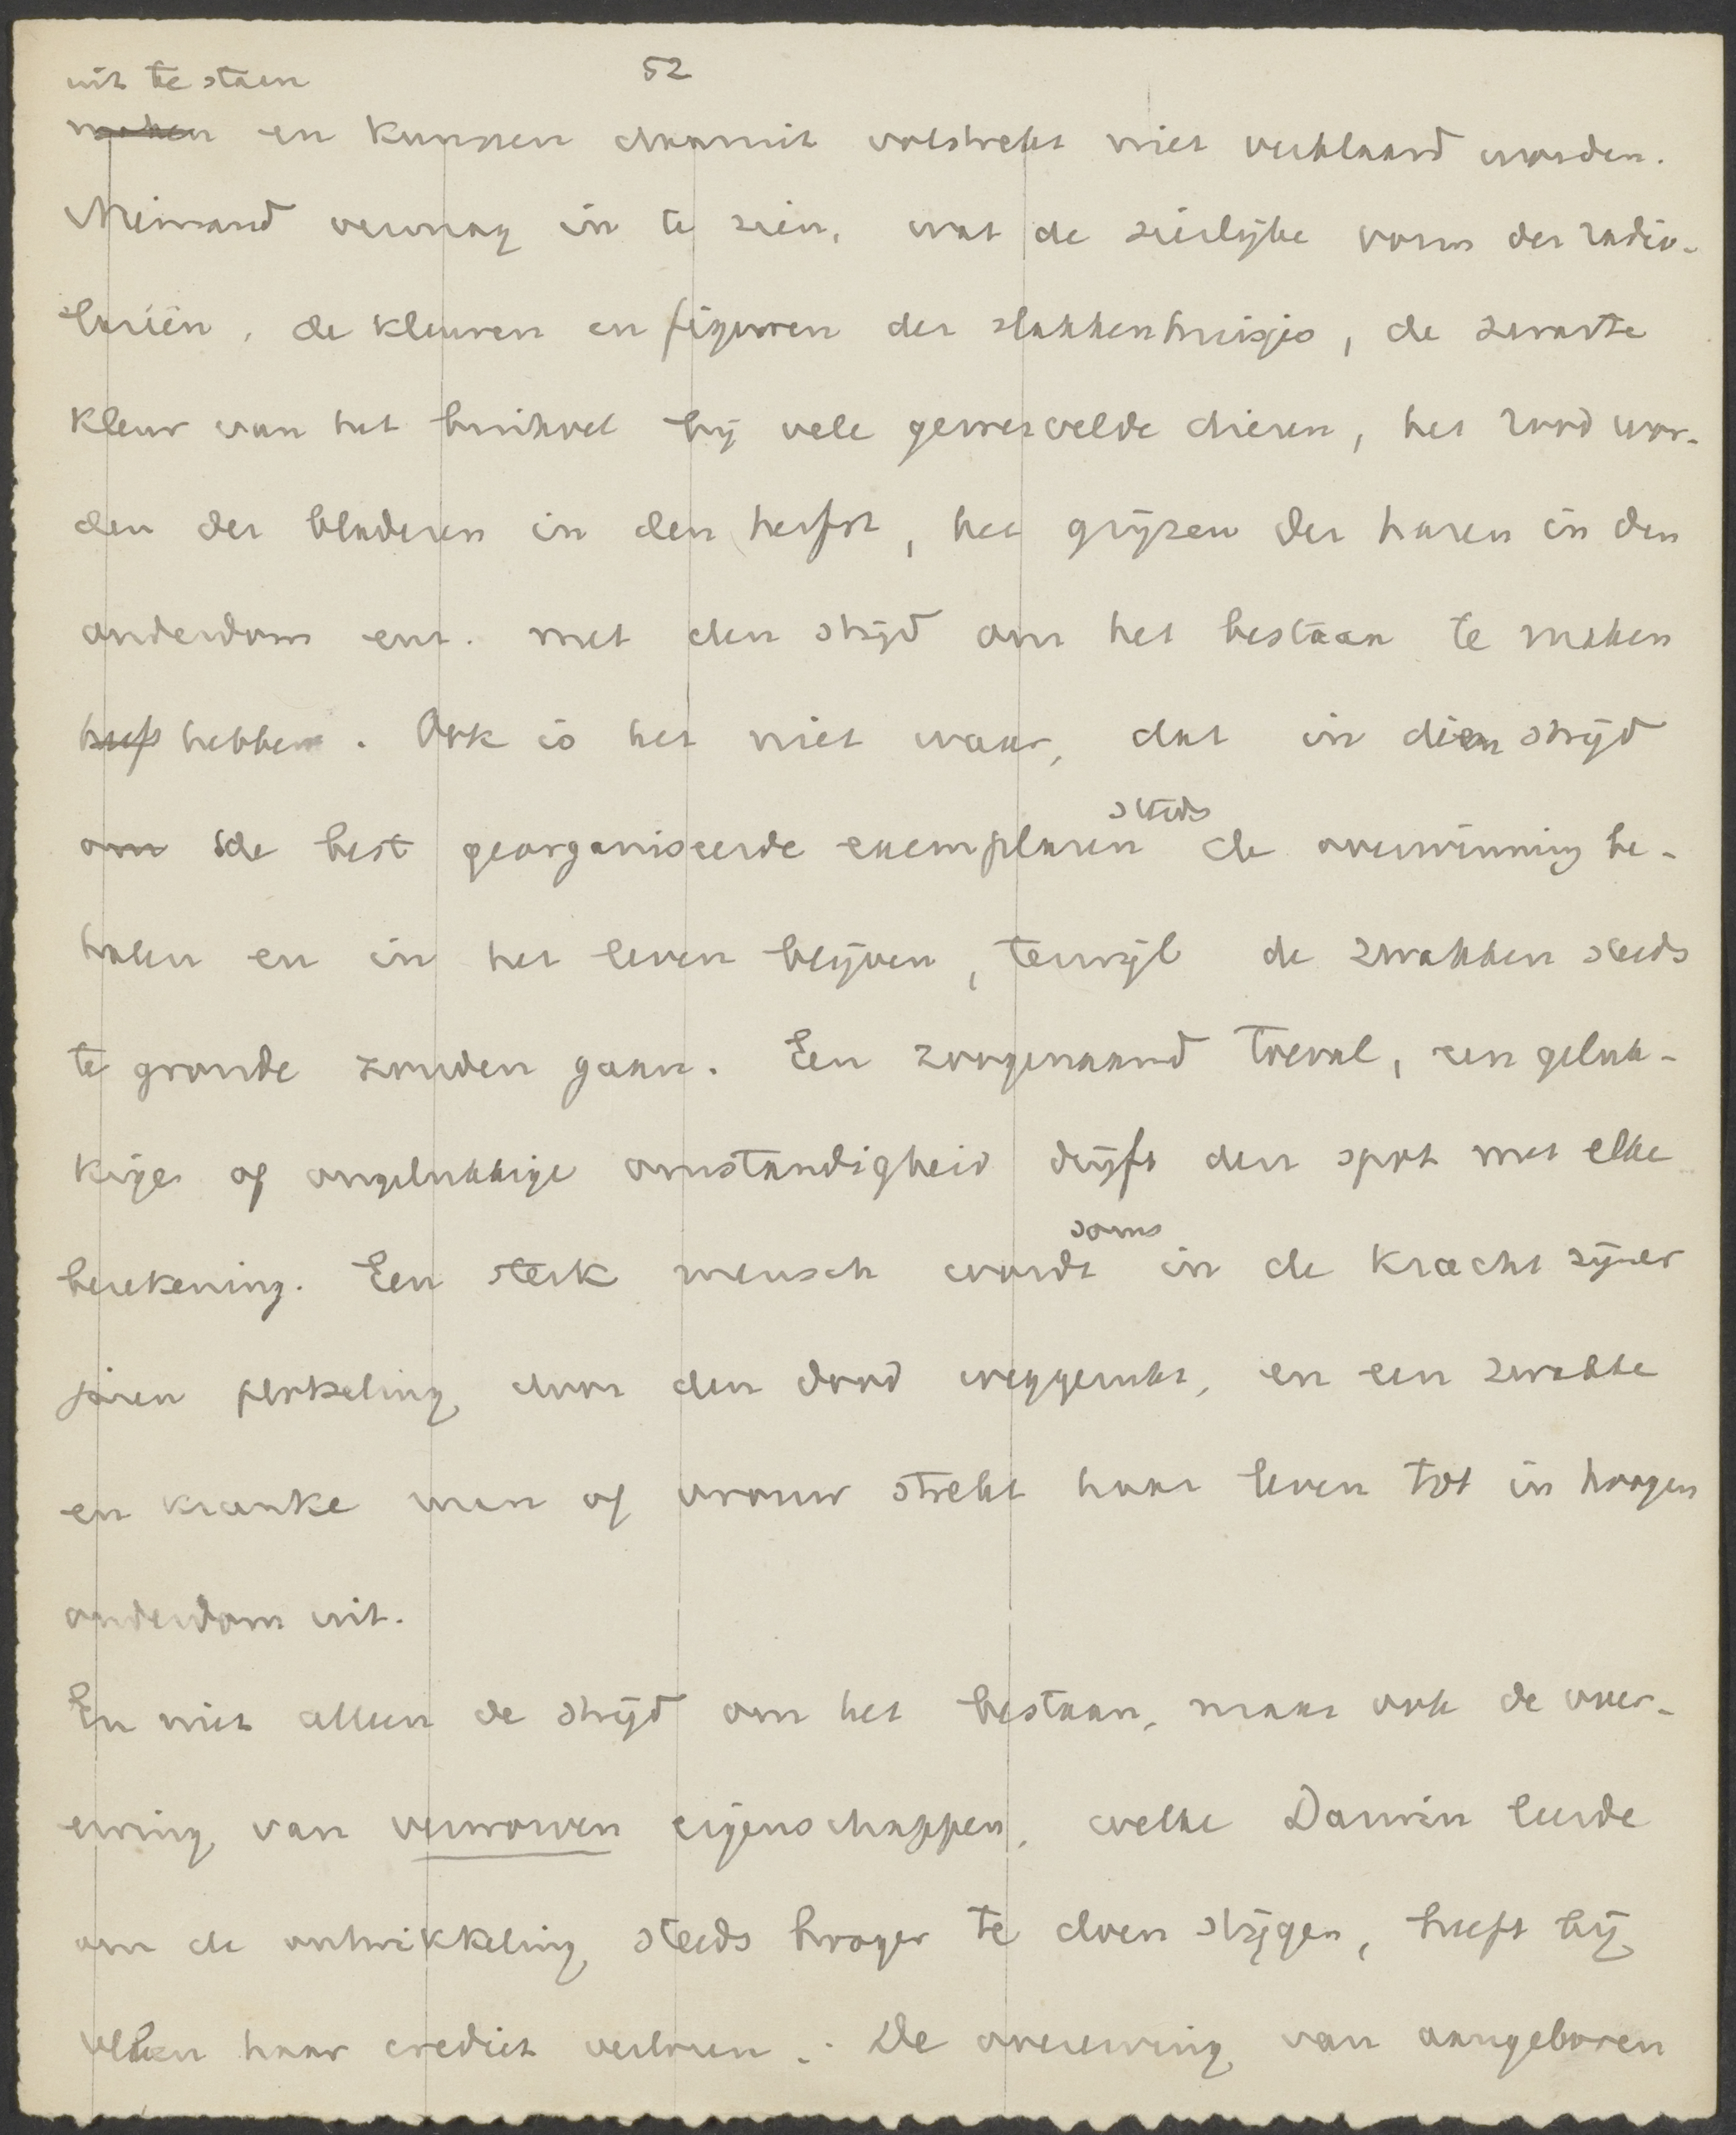 52
uit te staan
maken en kunnen daaruit volstrekt niet verklaard worden.
Niemand vermag in te zien, wat de sierlijke vorm der radio-
lariën, de kleuren en figuren der slakkenhuisjes, de zwarte
kleur van het buikvel bij vele gewervelde dieren, het rood wor-
den der bladeren in den herfst, het grijzen der haren in den
ouderdom enz. met den strijd om het bestaan te maken
heef hebben. Ook is het niet waar, dat in dien strijd
om de best georganiseerde exemplaren steds de overwinning be-
halen en in het leven blijven, terwijl de zwakken steeds
te gronde zouden gaan. Een zoogenaamd toeval, een geluk-
kige of ongelukkige omstandigheid drijft den spot met elke
berekening. Een sterk mensch wordt soms in de kracht zijner
jaren plotseling door den dood weggerukt, en een zwakke
en kranke man of vrouw strekt haar leven tot in hoogen
ouderdom uit.
En niet alleen de strijd om het bestaan, maar ook de over-
erving van verworven eigenschappen, welke Darwin leerde
om de ontwikkeling steeds hooger te doen stijgen, heeft bij
velen haar crediet verloren. De overerving van aangeboren